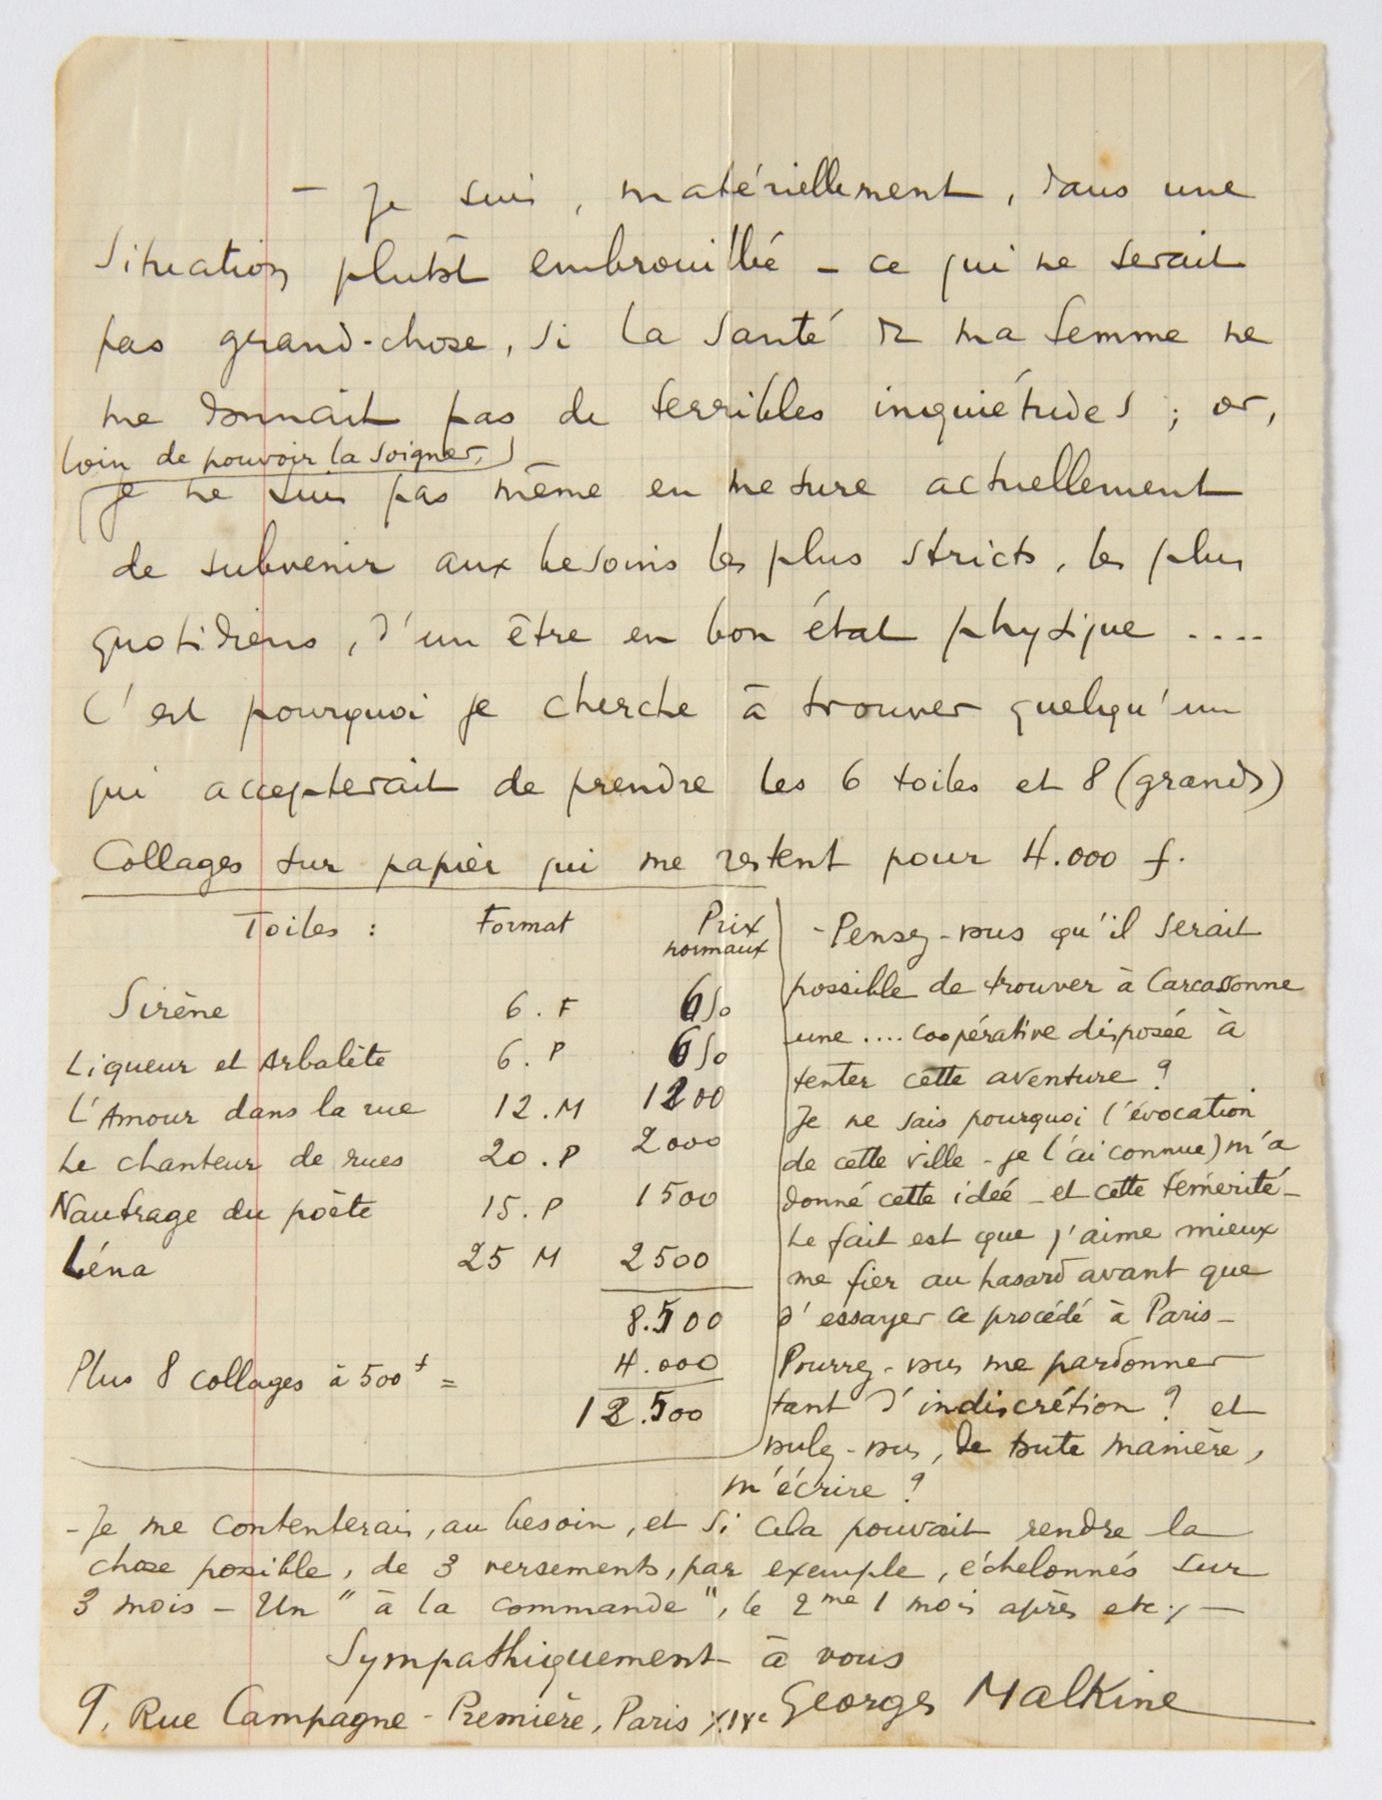 – Je suis, matériellement, dans une
situation plutôt embrouillée – ce qui ne serait
pas grand-chose, si la santé de ma femme ne
me donnait pas de terribles inquiétudes ; or,
loin de pouvoir la soigner,
je ne suis pas même en mesure actuellement
de subvenir aux besoins les plus stricts, les plus
quotidiens, d'un être en bon état physique ....
C'est pourquoi je cherche à trouver quelqu'un
qui accepterait de prendre les 6 toiles et 8 (grands)
Collages sur papier qui me restent pour 4.000 f.
Toiles : Format Prix normaux
Sirène 6. F 650
Liqueur et Arbalète 6. P 650
L'Amour dans la rue 12. M 1200
Le chanteur de rues 20. P 2000
Naufrage du poète 15. P 1500
Léna 25 M 2500
8.500
Plus 8 collages à 500 f = 4.000
12.500
- Pensez-vous qu'il serait
possible de trouver à Carcassonne
une .... coopérative disposée à
tenter cette aventure ?
Je ne sais pourquoi l'évocation
de cette ville - je l'ai connue) m'a
donné cette idée – et cette témérité –
Le fait est que j'aime mieux
me fier au hasard avant que
d'essayer ce procédé à Paris –
Pourrez-vous me pardonner
tant d'indiscrétion ? et
voulez-vous, de toute manière,
m'écrire ?
- Je me contenterais, au besoin, et si cela pouvait rendre la
chose possible, de 3 versements, par exemple, échelonnés sur
3 mois – Un "à la commande", le 2me 1 mois après etc. –
Sympathiquement à vous
Georges Malkine
9, Rue Campagne-Première, Paris XIVe